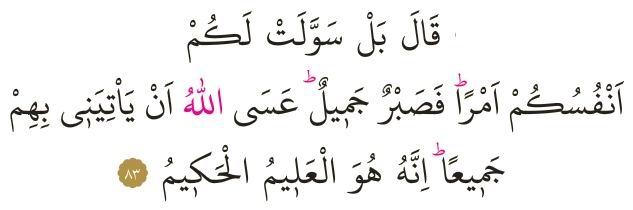 قَالَ بَلْ سَوَّلَتْ لَكُمْ
اَنْفُسُكُمْ اَمْرًاۜ فَصَبْرٌ جَم۪يلٌۜ عَسَى اللّٰهُ اَنْ يَأْتِيَن۪ى بِهِمْ
جَم۪يعًاۜ اِنَّهُ هُوَ الْعَل۪يمُ الْحَك۪يمُ ﴿٨٣﴾